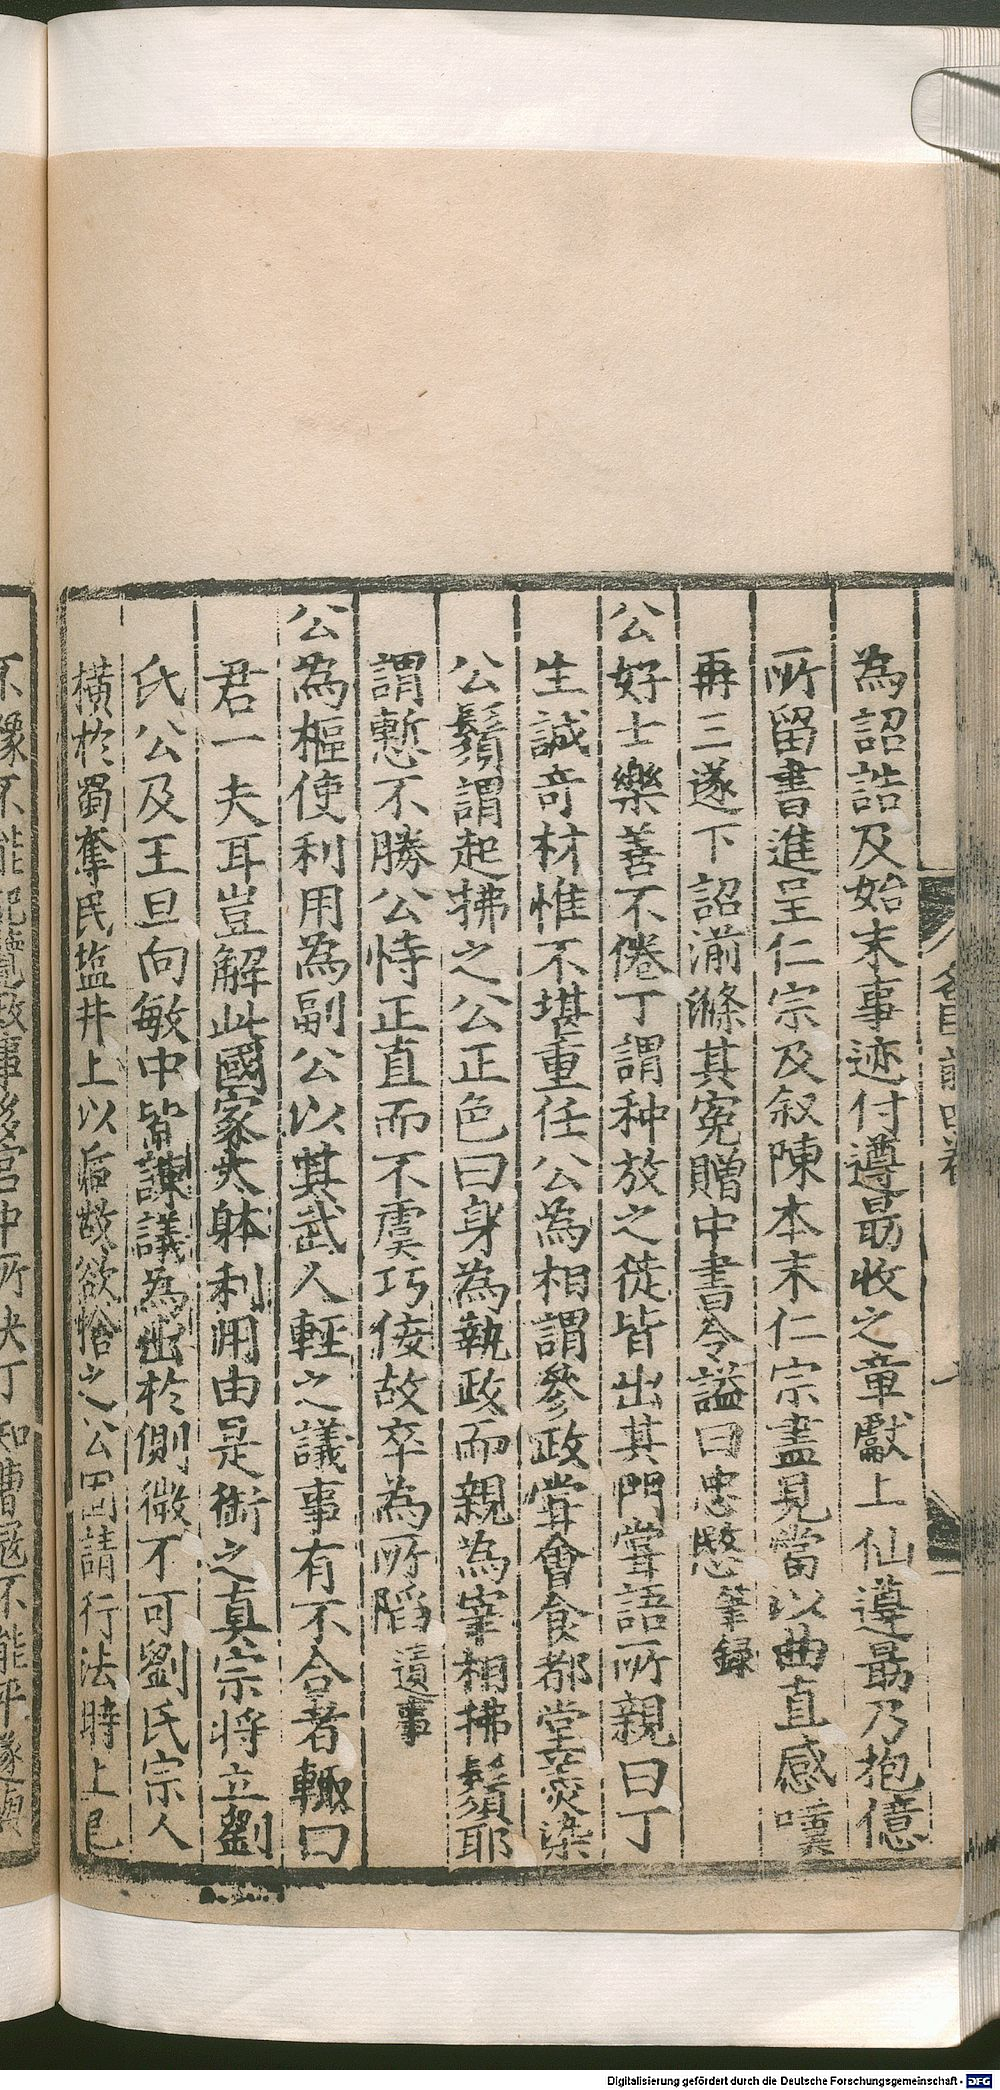 為詔誥及始末事迹付遵勗收之章獻上仙遵勗乃抱億
所留書進呈仁宗及叙陳本末仁宗盡見當以曲直感嘆
再三遂下詔湔滌其冤贈中書令謚曰忠愍筆録
公好士樂善不倦丁謂种放之徒皆出其門甞語所親曰丁
生誠奇材惟不堪重任公為相謂參政甞會食都堂羹染
公鬚謂起拂之公正色曰身為執政而親為宰相拂鬚耶
謂慙不勝公恃正直而不虞巧佞故卒為所陷遺事
公為樞使利用為副公以其武人輕之議事有不合者輙曰
君一夫耳豈解此國家大躰利用由是銜之真宗将立劉
氏公及王旦向敏中皆諫議為出於側微不可劉氏宗人
横於蜀奪民塩井上以后故欲捨之公固請行法時上已
不豫不能記覽政事多宫中所决丁和曹寇不能平遂
Digitalisierung gefördert durch die Deutsche Forschungsgemeinschaft - DFG